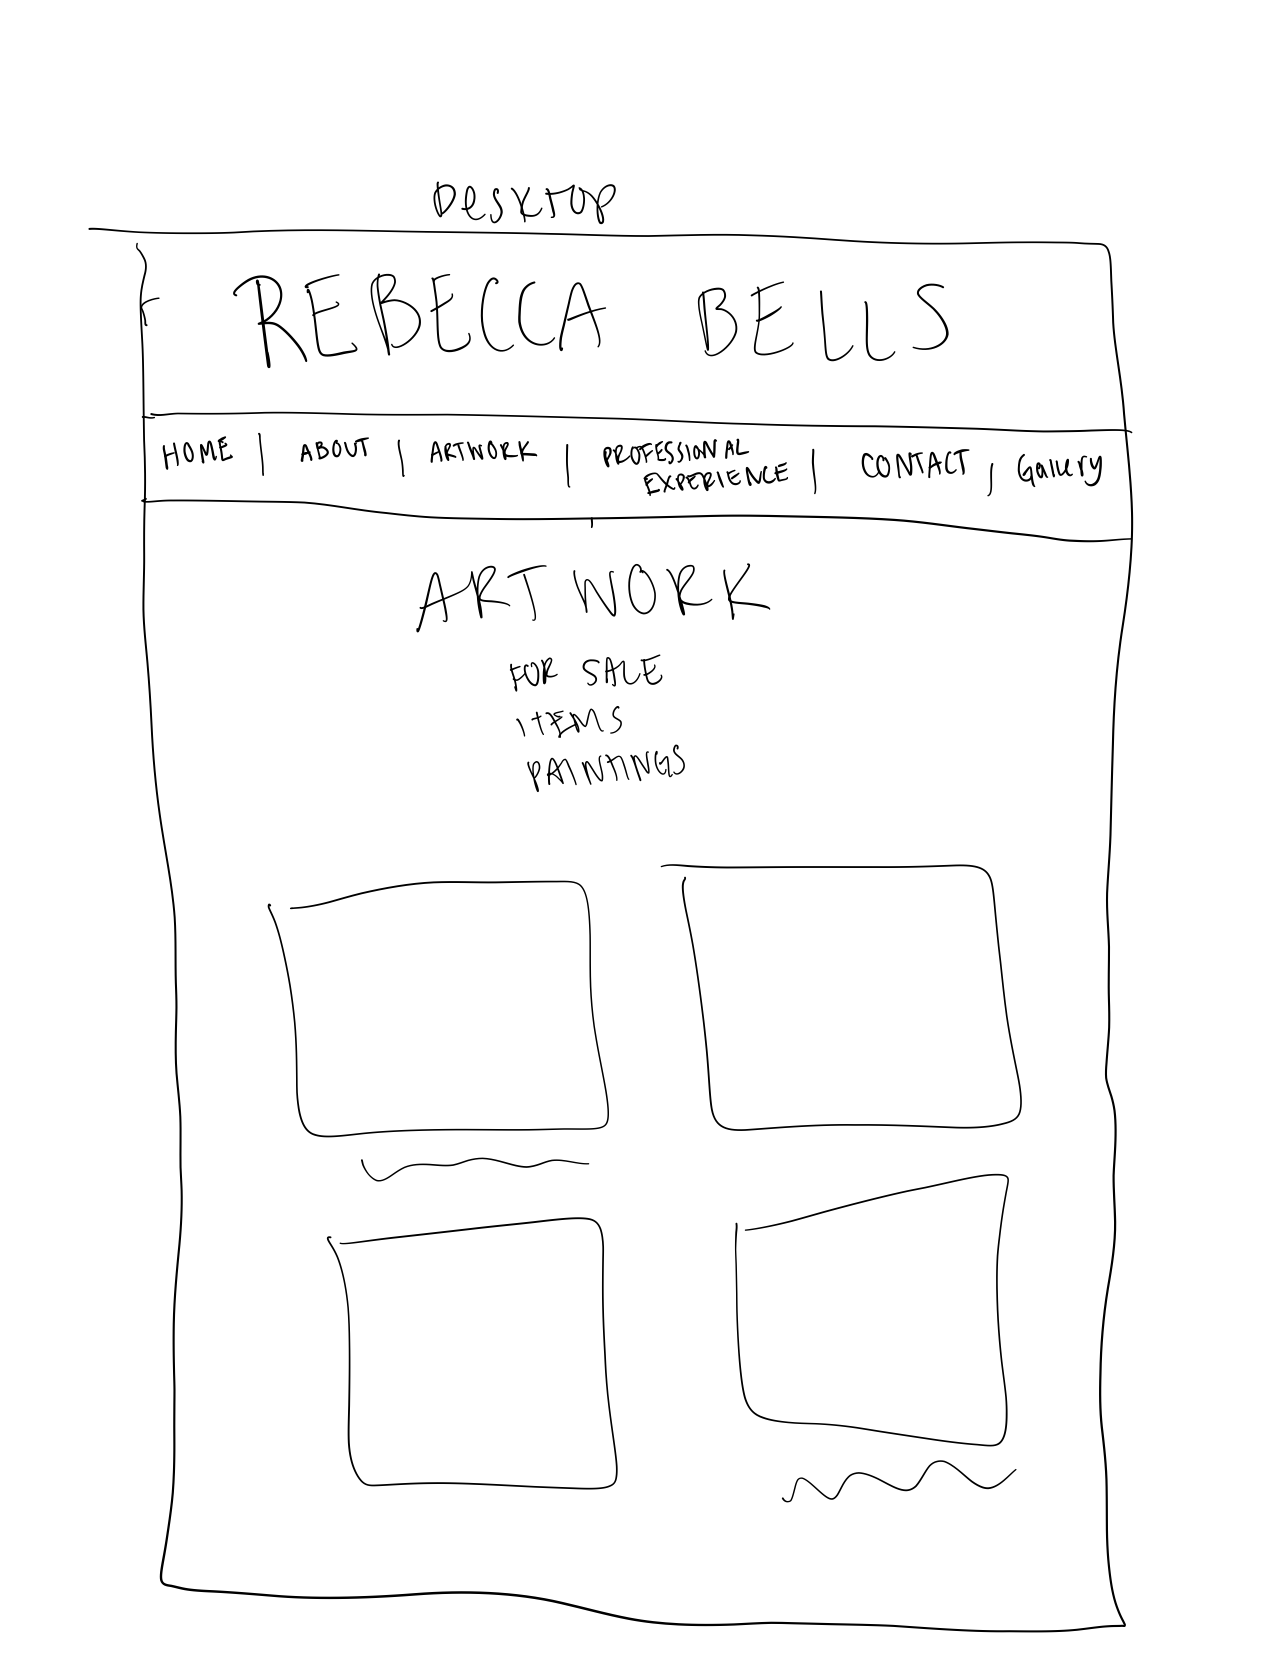 Desktop
REBECCA BELLS
HOME | ABOUT | ARTWORK | PROFESSIONAL EXPERIENCE | CONTACT | Gallery
ARTWORK
FOR SALE
ITEMS
PAINTINGS